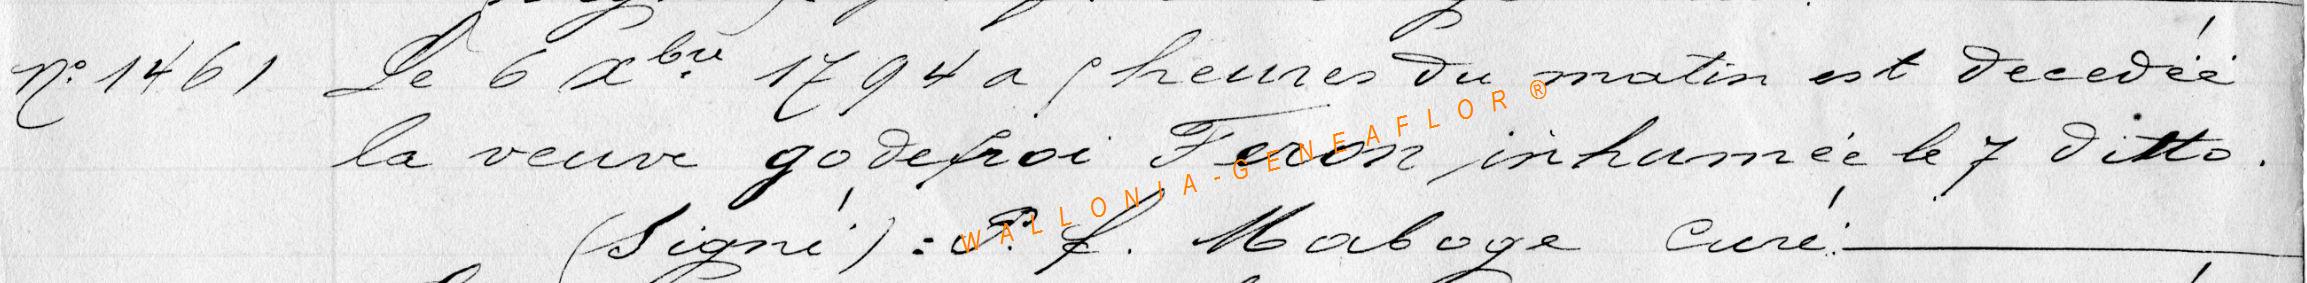 n° 1461 Le 6 xbre 1794 a 9 heures du matin est decedéé
la veuve godefroi Feron inhumée le 7 ditto.
(Signé) : P. f. Maboge Curé.
WALLONIA-GENEAFLOR®